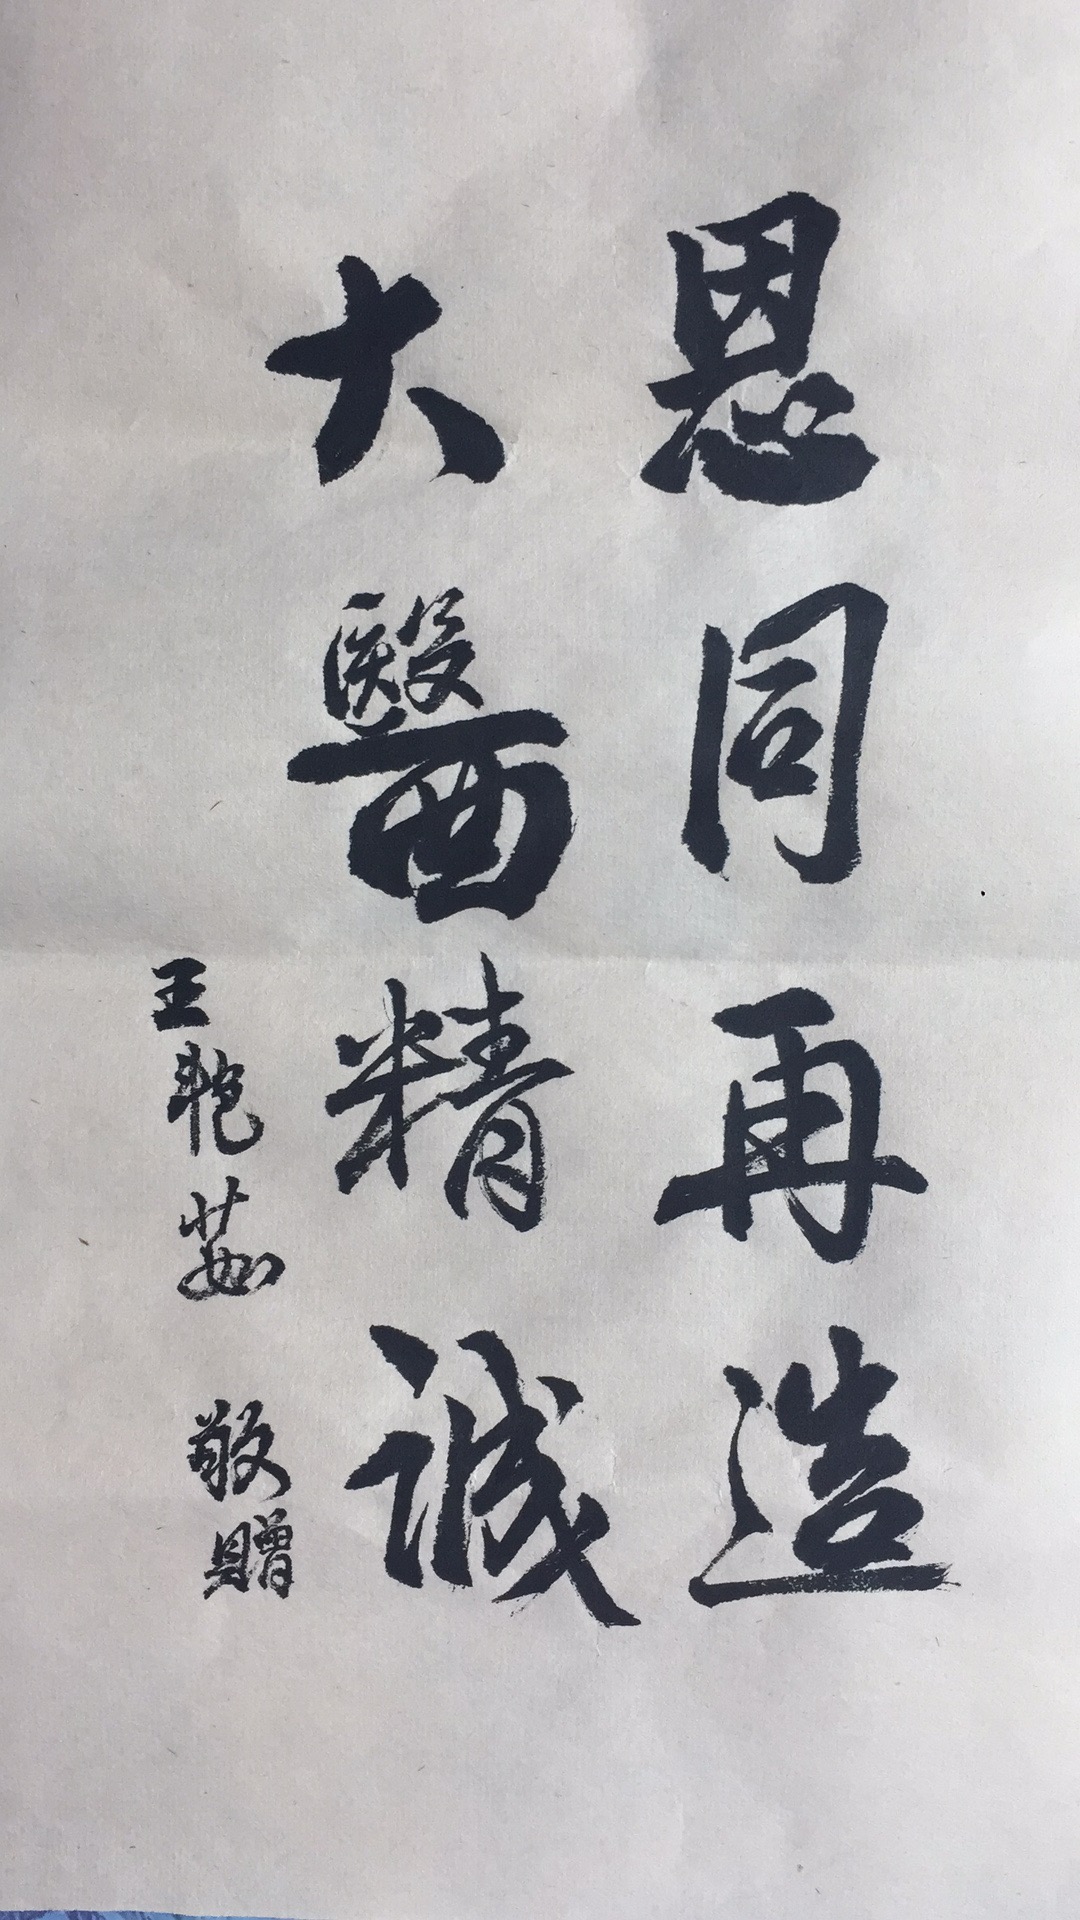 恩同再造
大醫精誠
王艳茹 敬贈